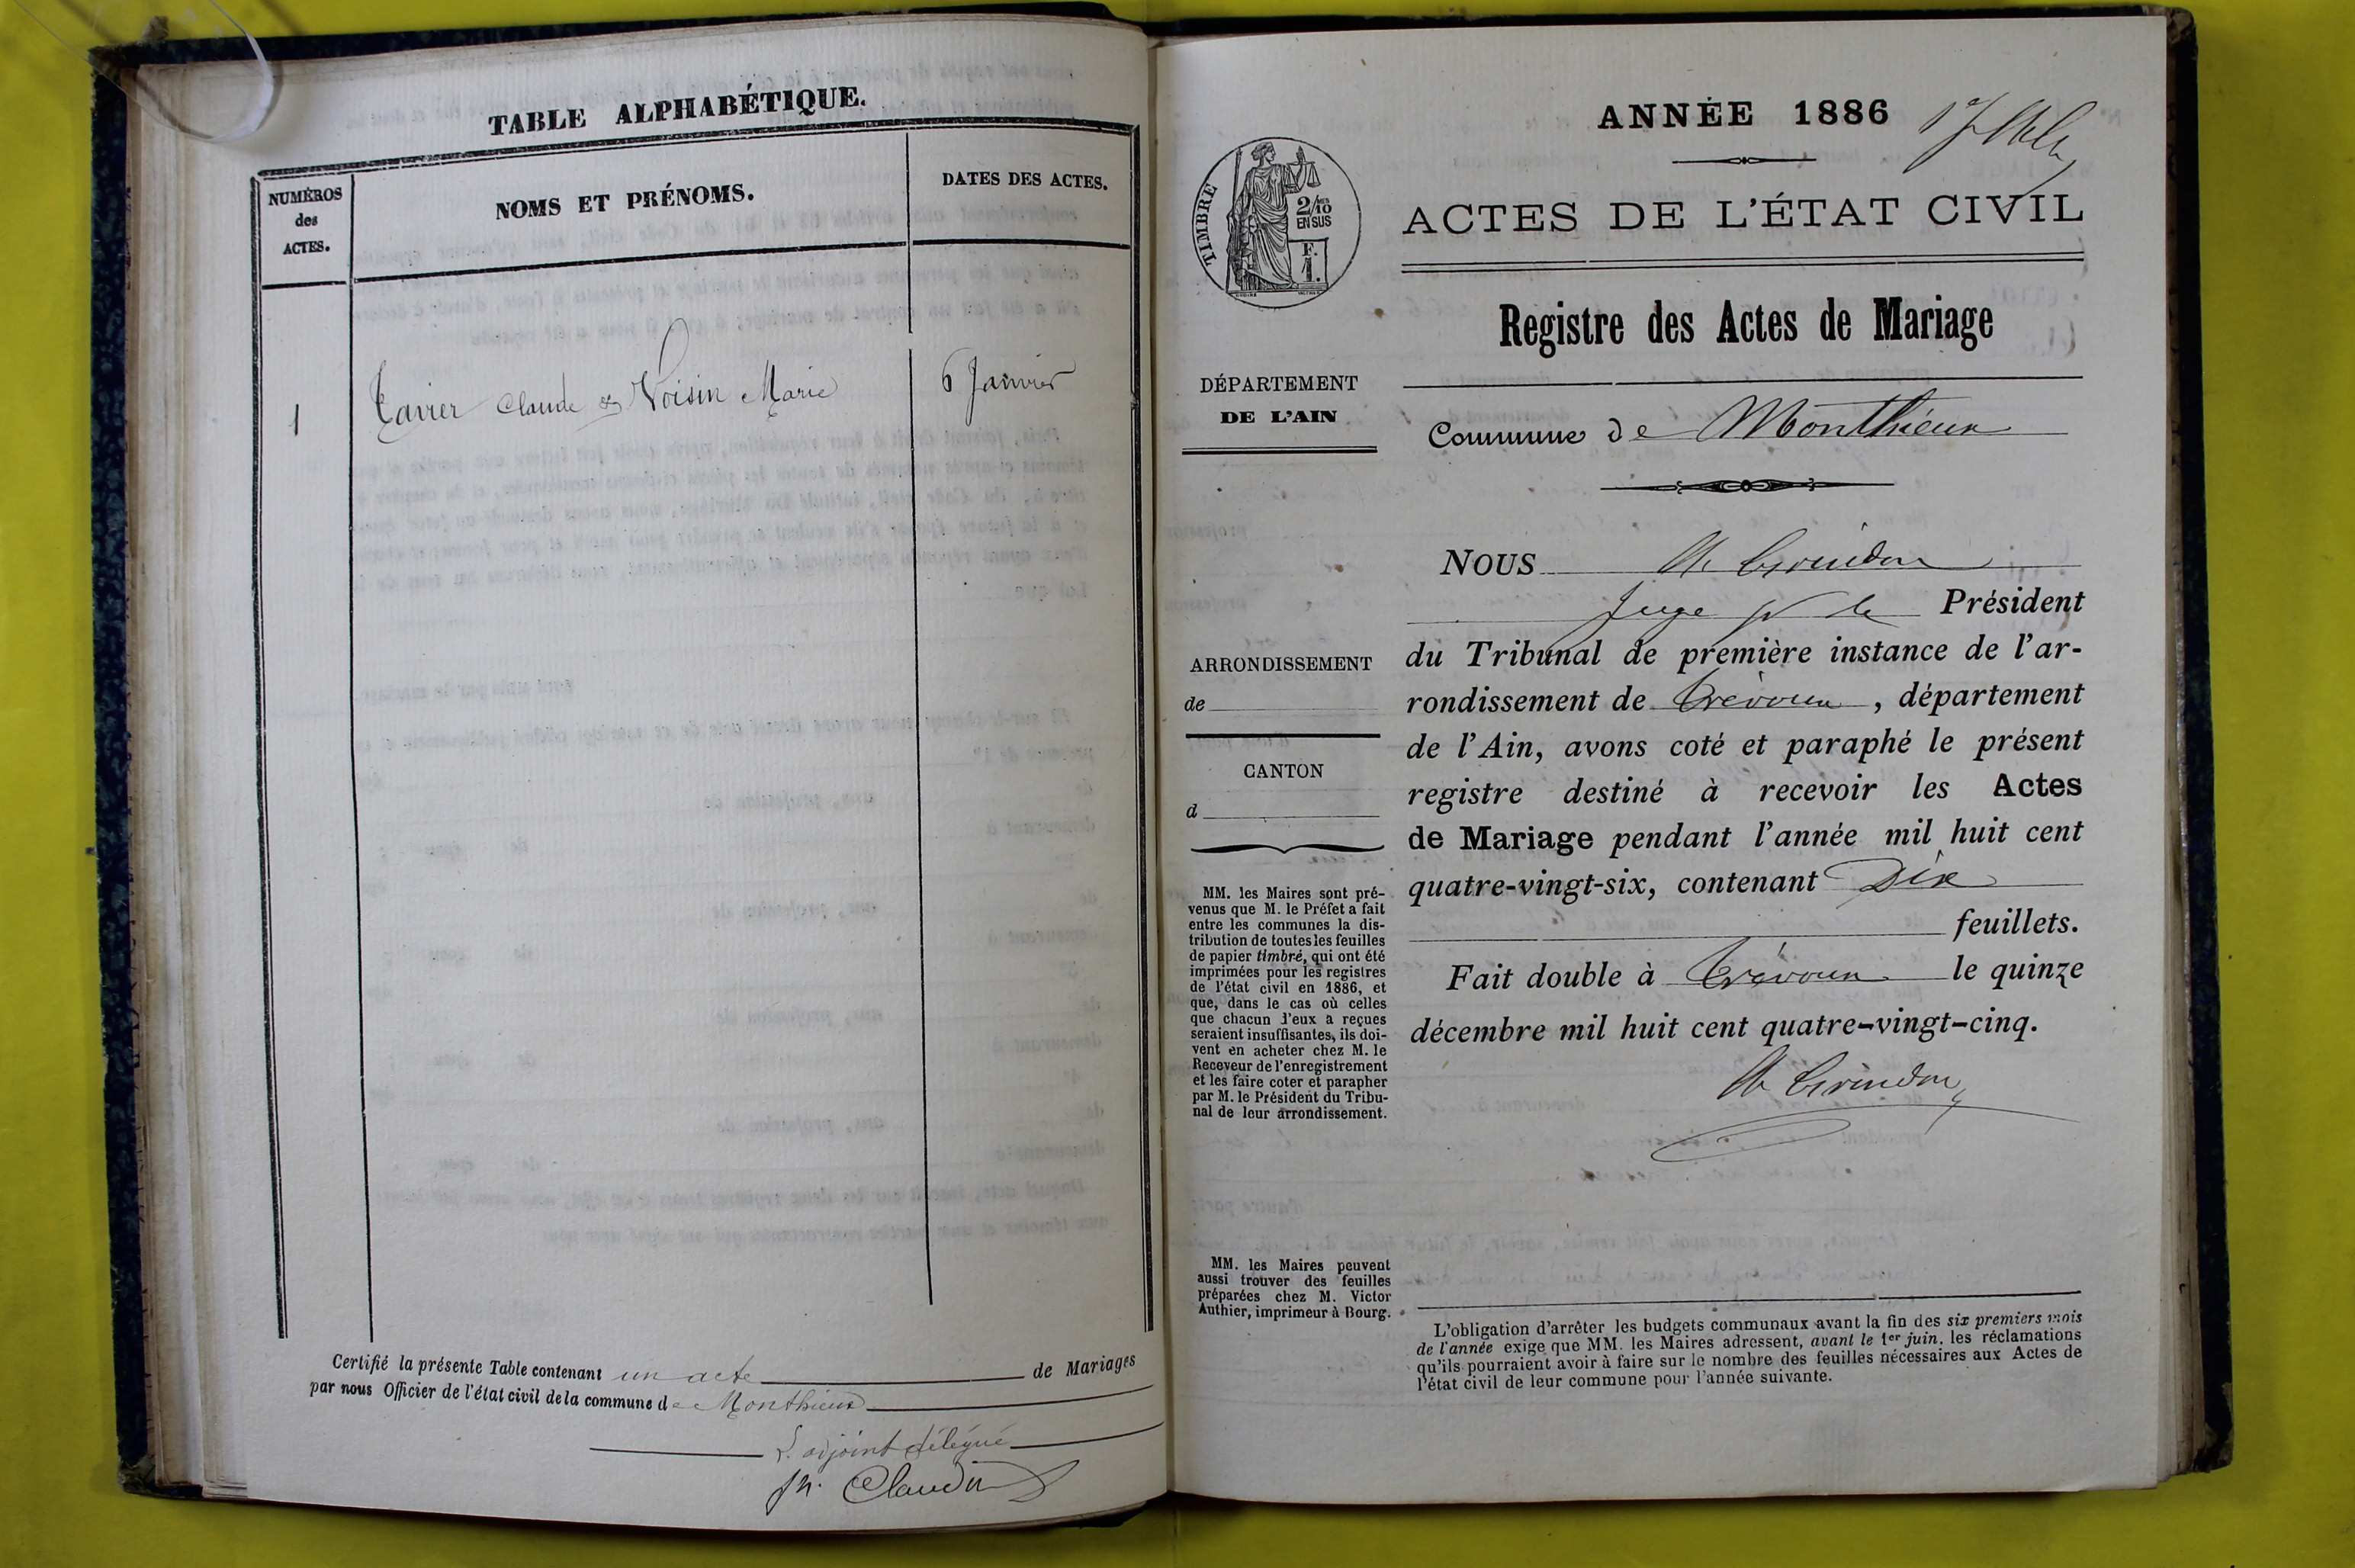 TABLE ALPHABÉTIQUE.
NUMÉROS
des
ACTES.
NOMS ET PRÉNOMS.
DATES DES ACTES.
1
Tavier Claude & Voisin Marie
6 Janvier
Certifié la présente Table contenant un acte de Mariages
par nous Officier de l'état civil de la commune de Monthieux
L'adjoint délégué
Claudin
ANNÉE 1886
TIMBRE
2/10
EN SUS
F.
1.
ACTES DE L'ÉTAT CIVIL
Registre des Actes de Mariage
DÉPARTEMENT
DE L'AIN
Commune de Monthieux
ARRONDISSEMENT
de
CANTON
d
MM. les Maires sont pré-
venus que M. le Préfet a fait
entre les communes la dis-
tribution de toutes les feuilles
de papier timbré, qui ont été
imprimées pour les registres
de l'état civil en 1886, et
que, dans le cas où celles
que chacun d'eux a reçues
seraient insuffisantes, ils doi-
vent en acheter chez M. le
Receveur de l'enregistrement
et les faire coter et parapher
par M. le Président du Tribu-
nal de leur arrondissement.
MM. les Maires peuvent
aussi trouver des feuilles
préparées chez M. Victor
Authier, imprimeur à Bourg.
NOUS
Juge pr le Président
du Tribunal de première instance de l'ar-
rondissement de Trévoux, département
de l'Ain, avons coté et paraphé le présent
registre destiné à recevoir les Actes
de Mariage pendant l'année mil huit cent
quatre-vingt-six, contenant Dix
feuillets.
Fait double à Trévoux le quinze
décembre mil huit cent quatre-vingt-cinq.
L'obligation d'arrêter les budgets communaux avant la fin des six premiers mois
de l'année exige que MM. les Maires adressent, avant le 1er juin, les réclamations
qu'ils pourraient avoir à faire sur le nombre des feuilles nécessaires aux Actes de
l'état civil de leur commune pour l'année suivante.